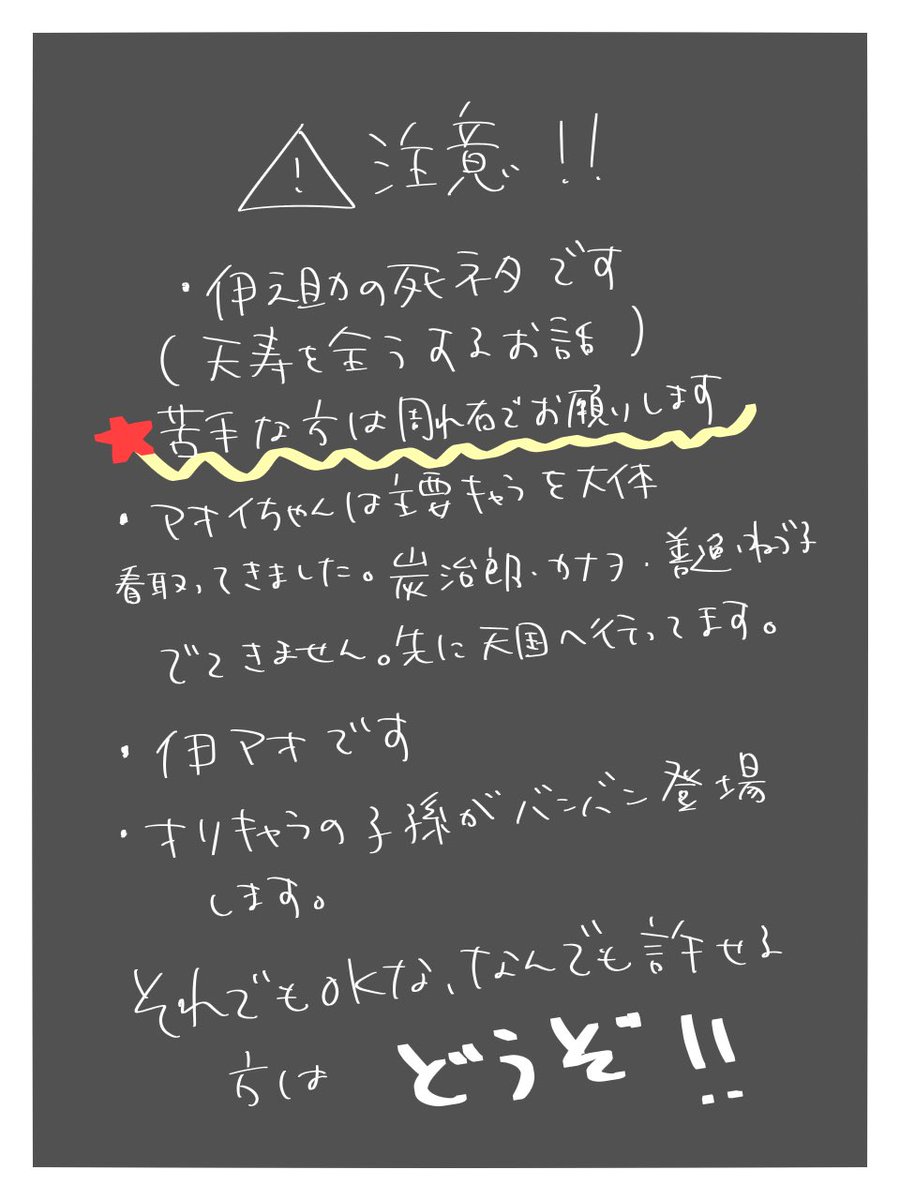 ⚠注意!!
・伊之助の死ネタです
(天寿を全うするお話)
★苦手な方は周れ右でお願いします
・アオイちゃんは主要キャラを大体
看取ってきました。炭治郎・カナヲ・善逸・ねづ子
でてきません。先に天国へ行ってます。
・伊アオです
・オリキャラの子孫がバンバン登場
します。
それでもOKな、なんでも許せる
方は どうぞ!!